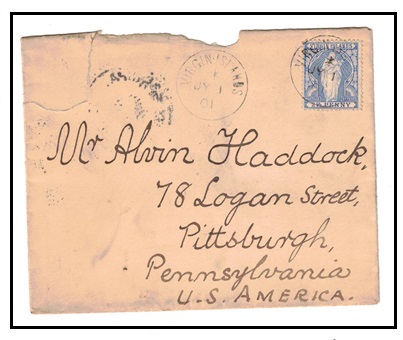 VIRGIN ISLANDS
A
JY 1
01
VIRGIN ISLANDS
2½ PENNY
Mr Alvin Haddock,
78 Logan Street,
Pittsburgh,
Pennsylvania
U.S. AMERICA.